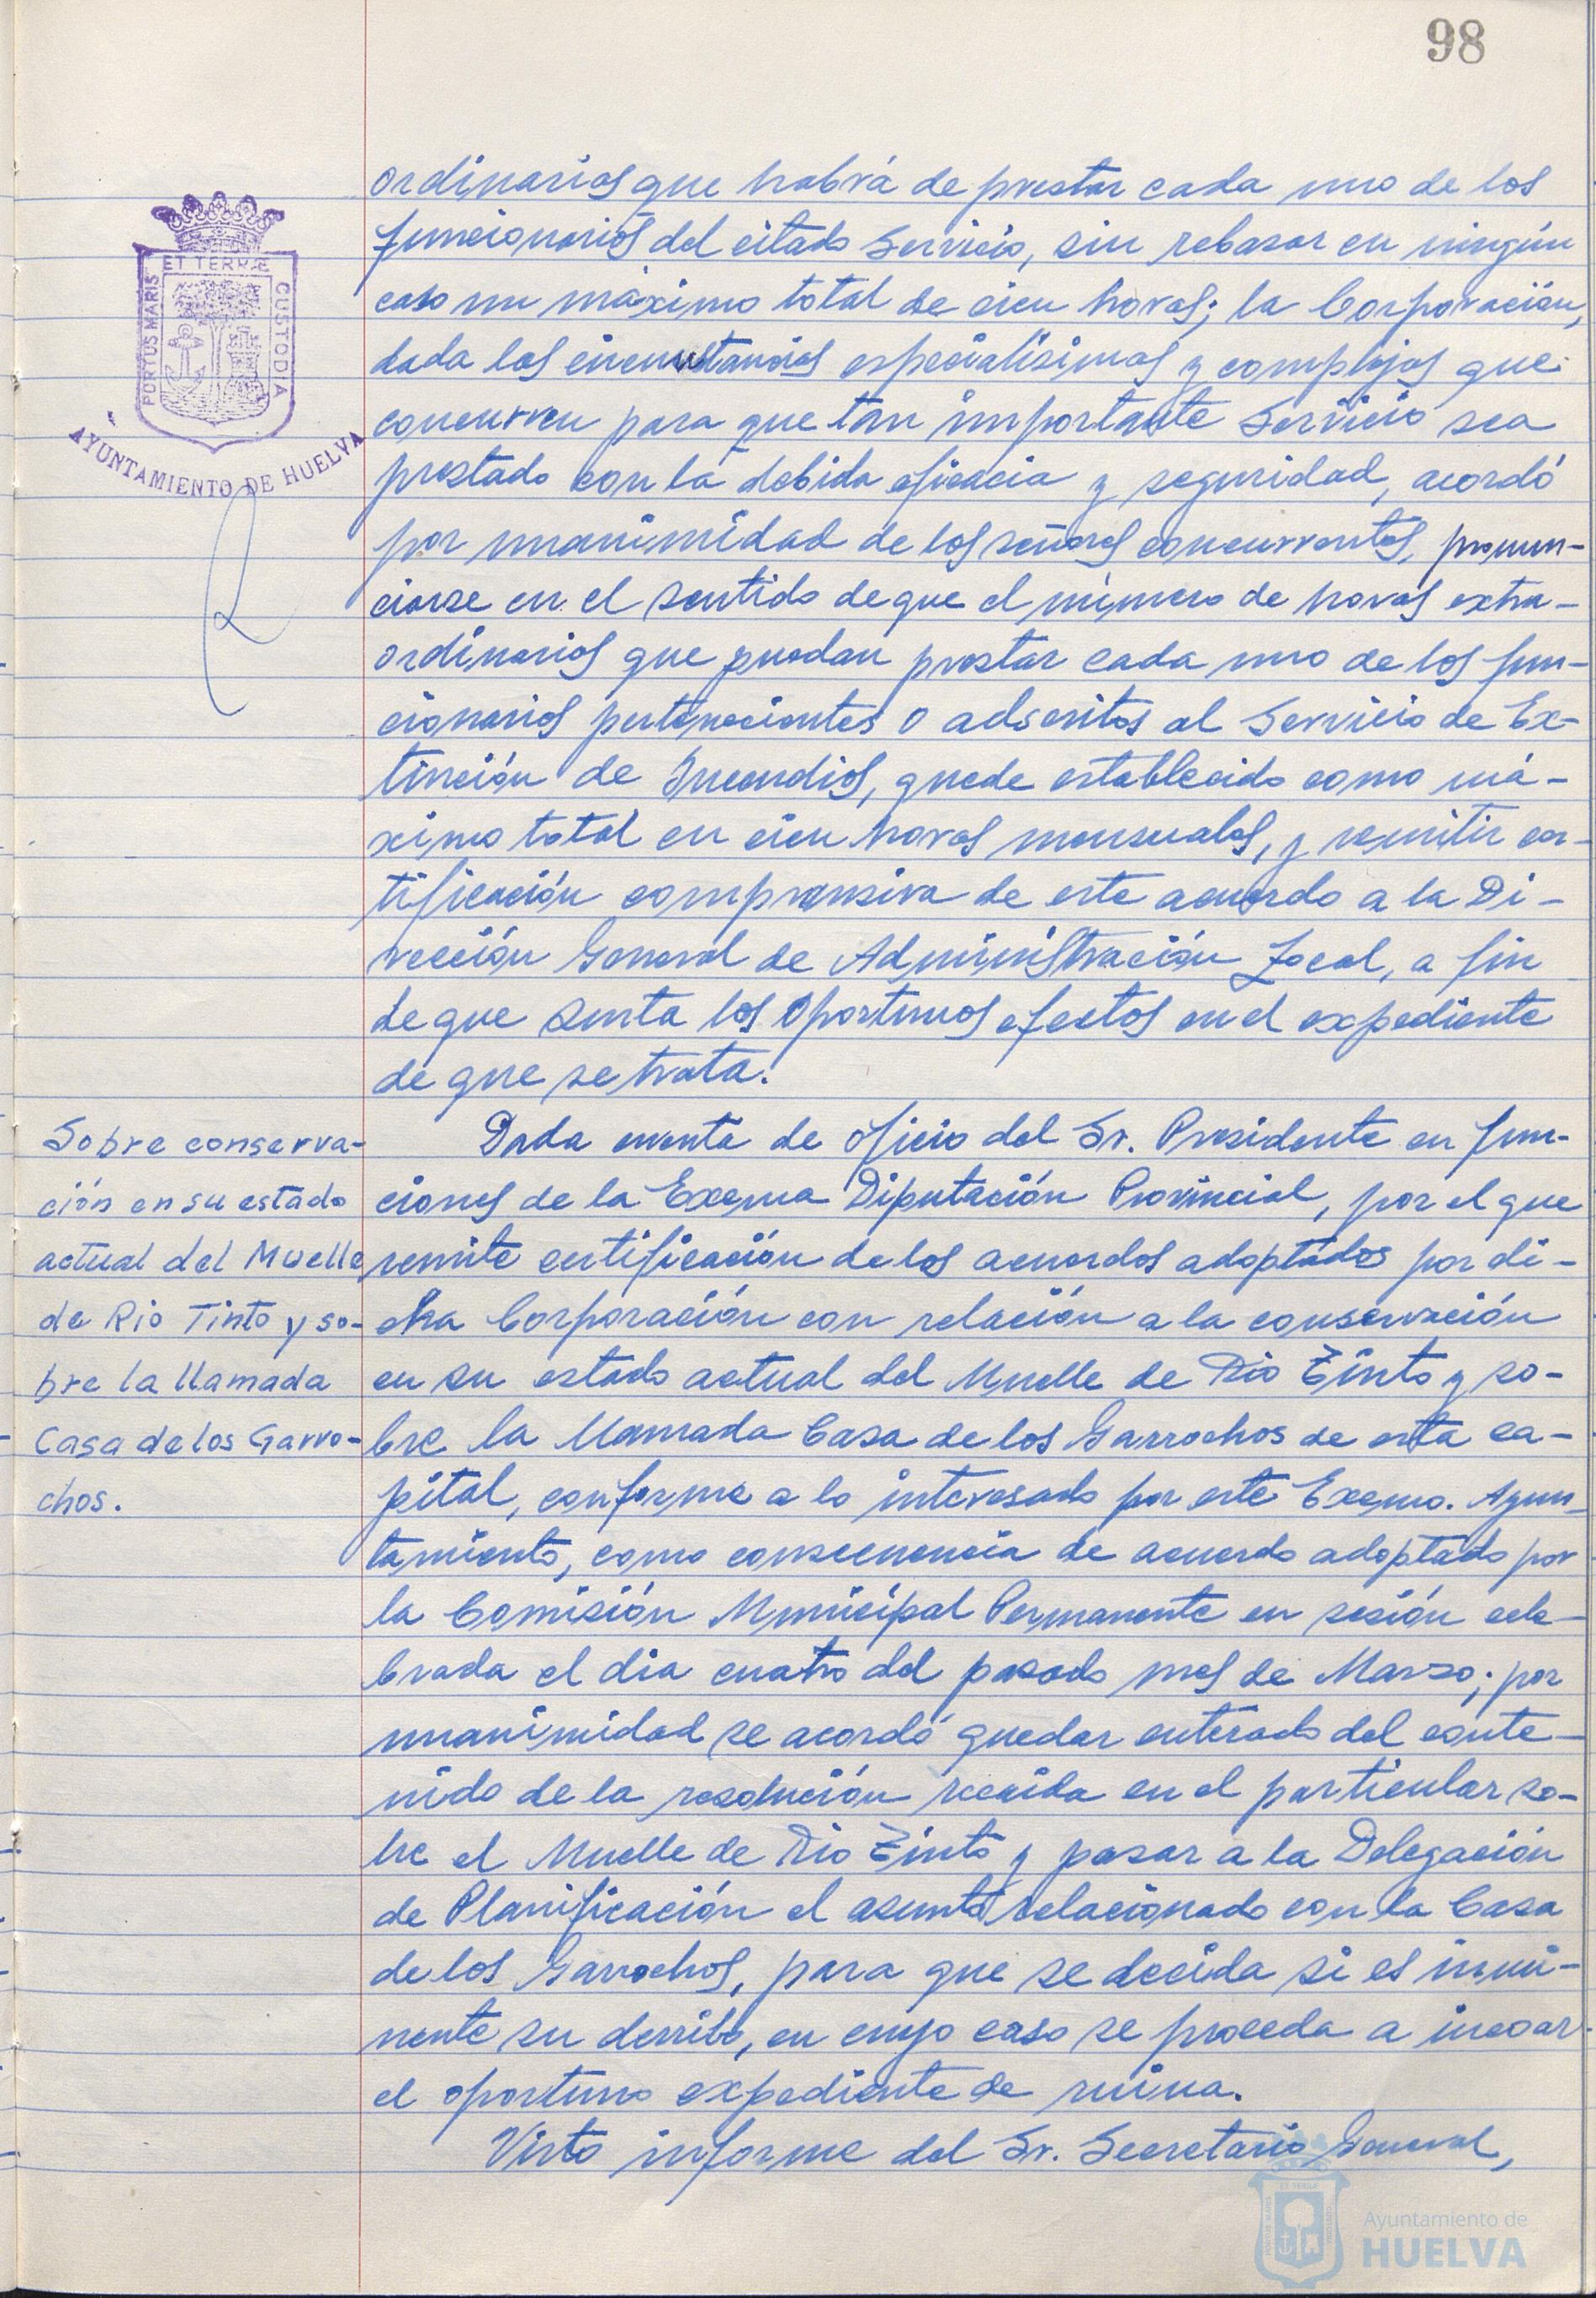 98
ordinarias que habrá de prestar cada uno de los
funcionarios del citado Servicio, sin rebasar en ningún
caso un máximo total de cien horas; la Corporación,
dada las circunstancias especialísimas y complejas que
concurren para que tan importante Servicio sea
prestado con la debida eficacia y seguridad, acordó
por unanimidad de los señores concurrentes, pronun-
ciarse en el sentido de que el número de horas extra-
ordinarias que puedan prestar cada uno de los fun-
cionarios pertenecientes o adscritos al Servicio de Ex-
tinción de Incendios, quede establecido como má-
ximo total en cien horas mensuales, y remitir cer-
tificación comprensiva de este acuerdo a la Di-
rección General de Administración Local, a fin
de que surta los oportunos efectos en el expediente
de que se trata.
PORTUS MARIS ET TERRÆ CUSTODIA
AYUNTAMIENTO DE HUELVA
Sobre conserva-
ción en su estado
actual del Muelle
de Rio Tinto y so-
bre la llamada
Casa de los Garro-
chos.
Dada cuenta de oficio del Sr. Presidente en fun-
ciones de la Excma Diputación Provincial, por el que
remite certificación de los acuerdos adoptados por di-
cha Corporación con relación a la conservación
en su estado actual del Muelle de Rio Tinto y so-
bre la llamada Casa de los Garrochos de esta ca-
pital, conforme a lo interesado por este Excmo. Ayun-
tamiento, como consecuencia de acuerdo adoptado por
la Comisión Municipal Permanente en sesión cele-
brada el dia cuatro del pasado mes de Marzo; por
unanimidad se acordó quedar enterado del conte-
nido de la resolución recaida en el particular so-
bre el Muelle de Rio Tinto y pasar a la Delegación
de Planificación el asunto relacionado con la Casa
de los Garrochos, para que se decida si es inmi-
nente su derribo, en cuyo caso se proceda a incoar
el oportuno expediente de ruina.
Visto informe del Sr. Secretario General,
Ayuntamiento de
HUELVA